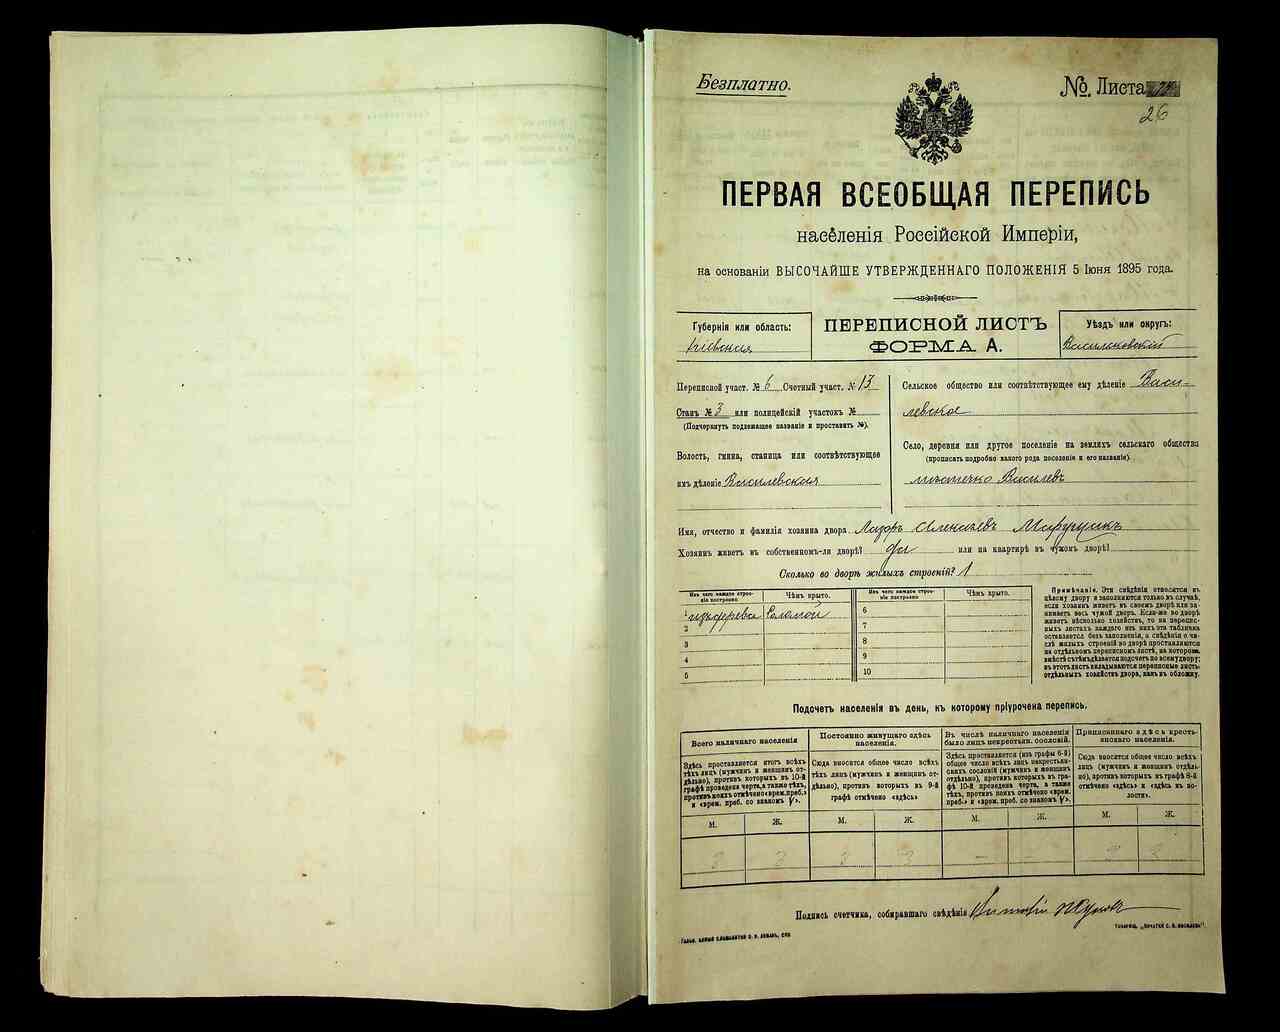 Безплатно.
№ Листа
26
ПЕРВАЯ ВСЕОБЩАЯ ПЕРЕПИСЬ
населенія Россійской Имперіи,
на основаніи ВЫСОЧАЙШЕ УТВЕРЖДЕННАГО ПОЛОЖЕНІЯ 5 Іюня 1895 года.
Губернія или область:
Кіевская
ПЕРЕПИСНОЙ ЛИСТЪ
ФОРМА А.
Уѣздъ или округъ:
Васильковскій
Переписной участ. № 6 Счетный участ. № 13
Станъ № 3 или полицейскій участокъ №
(Подчеркнуть подлежащее названіе и проставить №).
Волость, гмина, станица или соотвѣтствующее
имъ дѣленіе Василевская
Сельское общество или соотвѣтствующее ему дѣленіе Васи-
левское
Село, деревня или другое поселеніе на земляхъ сельскаго общества
(прописать подробно какого рода поселеніе и его названіе).
мѣстечко Василевъ
Имя, отчество и фамилія хозяина двора Лазарь
Хозяинъ живетъ въ собственномъ-ли дворѣ? да или на квартирѣ въ чужомъ дворѣ?
Сколько во дворѣ жилыхъ строеній? 1
Изъ чего каждое строе-
ніе построено
Чѣмъ крыто.
1 изъ дерева Соломой
2
3
4
5
Изъ чего каждое строе-
ніе построено
Чѣмъ крыто.
6
7
8
9
10
Примѣчаніе. Эти свѣдѣнія относятся къ
цѣлому двору и заполняются только въ случаѣ,
если хозяинъ живетъ въ своемъ дворѣ или за-
нимаетъ весь чужой дворъ. Если-же во дворѣ
живетъ нѣсколько хозяйствъ, то на перепис-
ныхъ листахъ каждаго изъ нихъ эта табличка
оставляется безъ заполненія, а свѣдѣнія о чи-
слѣ жилыхъ строеній во дворѣ проставляются
на отдѣльномъ переписномъ листѣ, на которомъ
вмѣстѣ съ тѣмъ дѣлается подсчетъ по всему двору;
въ этотъ листъ вкладываются переписные листы
отдѣльныхъ хозяйствъ двора, какъ въ обложку.
Подсчетъ населенія въ день, къ которому пріурочена перепись.
Всего наличнаго населенія
Здѣсь проставляется итогъ всѣхъ
тѣхъ лицъ (мужчинъ и женщинъ от-
дѣльно), противъ которыхъ въ 10-й
графѣ проведена черта, а также тѣхъ,
противъ коихъ отмѣчено «врем. преб.»
и «врем. преб. со знакомъ V».
М. Ж.
3 3
Постоянно живущаго здѣсь
населенія.
Сюда вносится общее число всѣхъ
тѣхъ лицъ (мужчинъ и женщинъ от-
дѣльно), противъ которыхъ въ 9-й
графѣ отмѣчено «здѣсь»
М. Ж.
3 3
Въ числѣ наличнаго населенія
было лицъ некрестьян. сословій.
Здѣсь проставляется (изъ графы 6-й)
общее число всѣхъ лицъ некрестьян-
скихъ сословій (мужчинъ и женщинъ
отдѣльно), противъ которыхъ въ гра-
фѣ 10-й проведена черта, а также
тѣхъ, противъ коихъ отмѣчено «врем.
преб.» и «врем. преб. со знакомъ V».
М. Ж.
– –
Приписаннаго здѣсь кресть-
янскаго населенія.
Сюда вносится общее число всѣхъ
лицъ (мужчинъ и женщинъ отдѣль-
но), противъ которыхъ въ графѣ 8-й
отмѣчено «здѣсь» и «здѣсь въ во-
лости».
М. Ж.
3 3
Подпись счетчика, собиравшаго свѣдѣнія